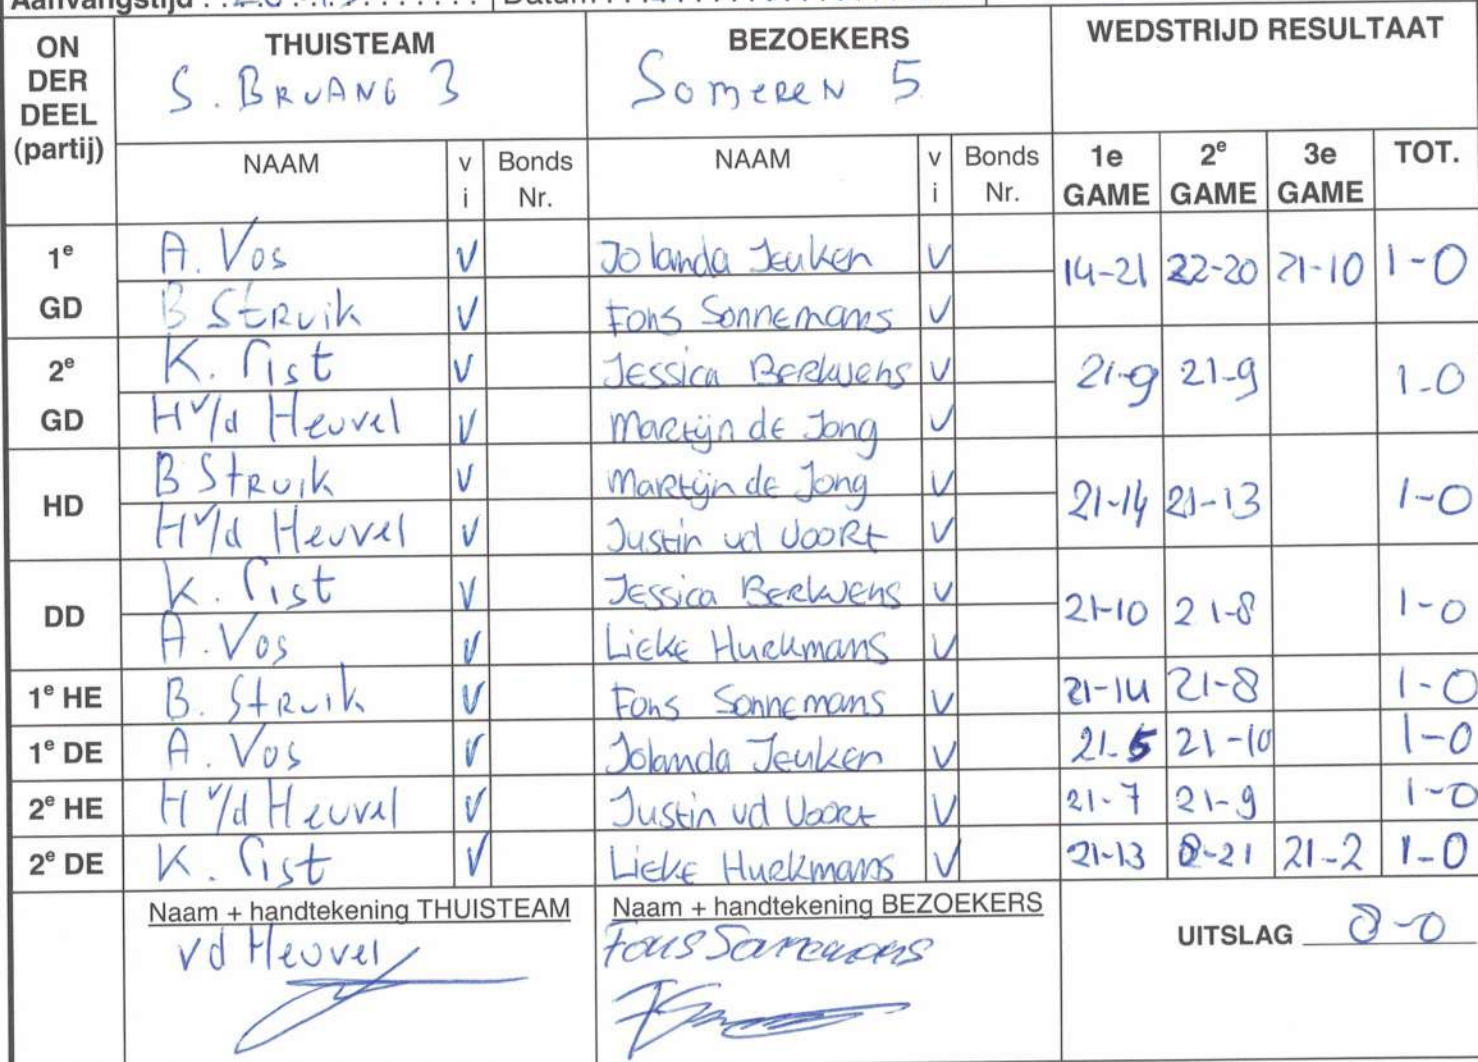 Aanvangstijd : Datum :
ON DER DEEL (partij) THUISTEAM BEZOEKERS WEDSTRIJD RESULTAAT
S. BRUANG 3 Someren 5
NAAM v i Bonds Nr. NAAM v i Bonds Nr. 1e GAME 2e GAME 3e GAME TOT.
1e GD A. Vos V Jolanda Jeuken V 14-21 22-20 21-10 1-0
B Struik V Fons Sonnemans V
2e GD K. Pist V Jessica Berkvens V 21-9 21-9 1-0
H v/d Heuvel V Martijn de Jong V
HD B Struik V Martijn de Jong V 21-14 21-13 1-0
H v/d Heuvel V Justin vd Voort V
DD K. Pist V Jessica Berkvens V 21-10 21-8 1-0
A. Vos V Lieke Hurkmans V
1e HE B. Struik V Fons Sonnemans V 21-14 21-8 1-0
1e DE A. Vos V Jolanda Jeuken V 21-5 21-10 1-0
2e HE H v/d Heuvel V Justin vd Voort V 21-7 21-9 1-0
2e DE K. Pist V Lieke Hurkmans V 21-13 8-21 21-2 1-0
Naam + handtekening THUISTEAM Naam + handtekening BEZOEKERS UITSLAG 8-0
vd Heuvel Fons Sonnemans